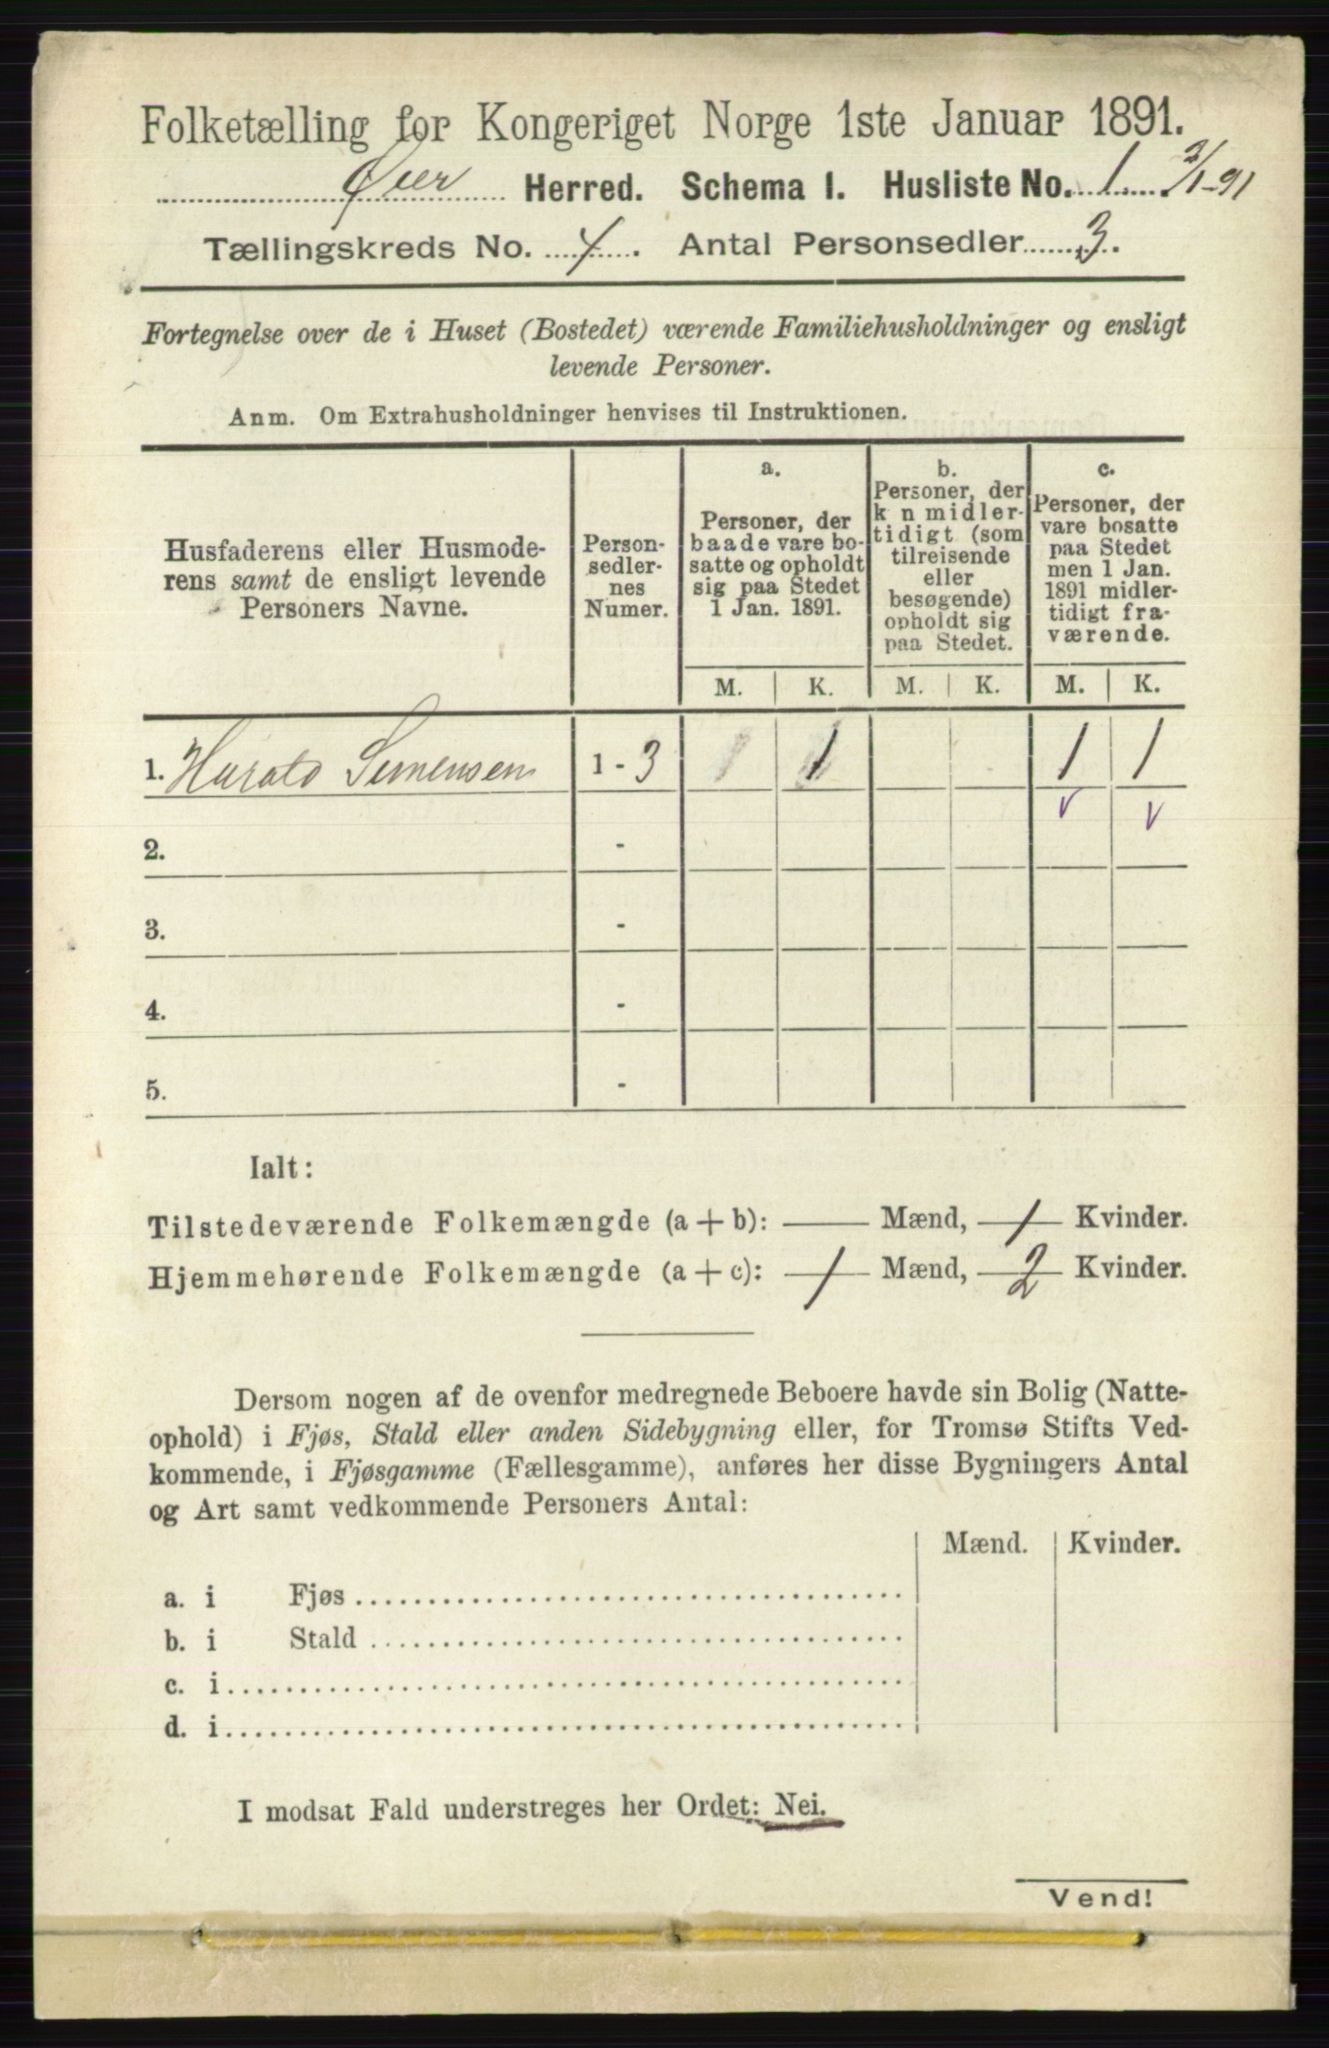 Folketælling for Kongeriget Norge 1ste Januar 1891.
Øier Herred. Schema I. Husliste No. 1. 3/1-91
Tællingskreds No. 4. Antal Personsedler 3.
Fortegnelse over de i Huset (Bostedet) værende Familiehusholdninger og ensligt
levende Personer.
Anm. Om Extrahusholdninger henvises til Instruktionen.
Husfaderens eller Husmode-
rens samt de ensligt levende
Personers Navne.
Person-
sedler-
nes
Numer.
a.
Personer, der
baade vare bo-
satte og opholdt
sig paa Stedet
1 Jan. 1891.
b.
Personer, der
k n midler-
tidigt (som
tilreisende
eller
besøgende)
opholdt sig
paa Stedet.
c.
Personer, der
vare bosatte
paa Stedet
men 1 Jan.
1891 midler-
tidigt fra-
værende.
M. K. M. K. M. K.
1. Harald Simensen 1 - 3 1 1 1 1
v v
2. -
3. -
4. -
5. -
Ialt:
Tilstedeværende Folkemængde (a + b): — Mænd, 1 Kvinder.
Hjemmehørende Folkemængde (a + c): 1 Mænd, 2 Kvinder.
Dersom nogen af de ovenfor medregnede Beboere havde sin Bolig (Natte-
ophold) i Fjøs, Stald eller anden Sidebygning eller, for Tromsø Stifts Ved-
kommende, i Fjøsgamme (Fællesgamme), anføres her disse Bygningers Antal
og Art samt vedkommende Personers Antal:
Mænd. Kvinder.
a. i Fjøs
b. i Stald
c. i
d. i
I modsat Fald understreges her Ordet: Nei.
Vend!